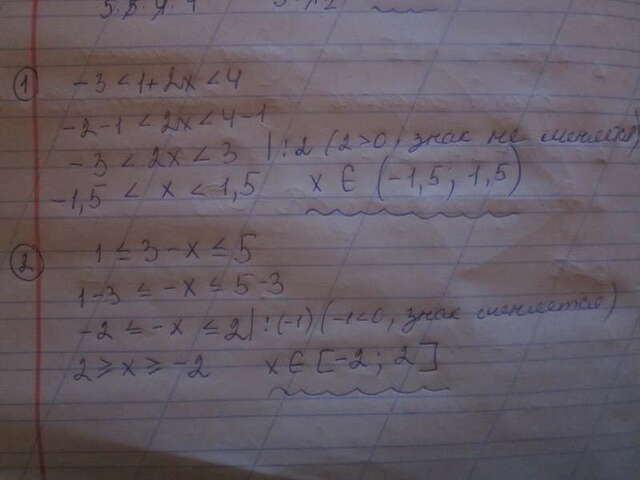 ① -3 < 1 + 2x < 4
-2 - 1 < 2x < 4 - 1
-3 < 2x < 3 | : 2 (2>0, знак не меняется)
-1,5 < x < 1,5 x ∈ (-1,5; 1,5)
② 1 ≤ 3 - x ≤ 5
1-3 ≤ -x ≤ 5-3
-2 ≤ -x ≤ 2 | : (-1) (-1<0, знак меняется)
2 ≥ x ≥ -2 x ∈ [-2; 2]